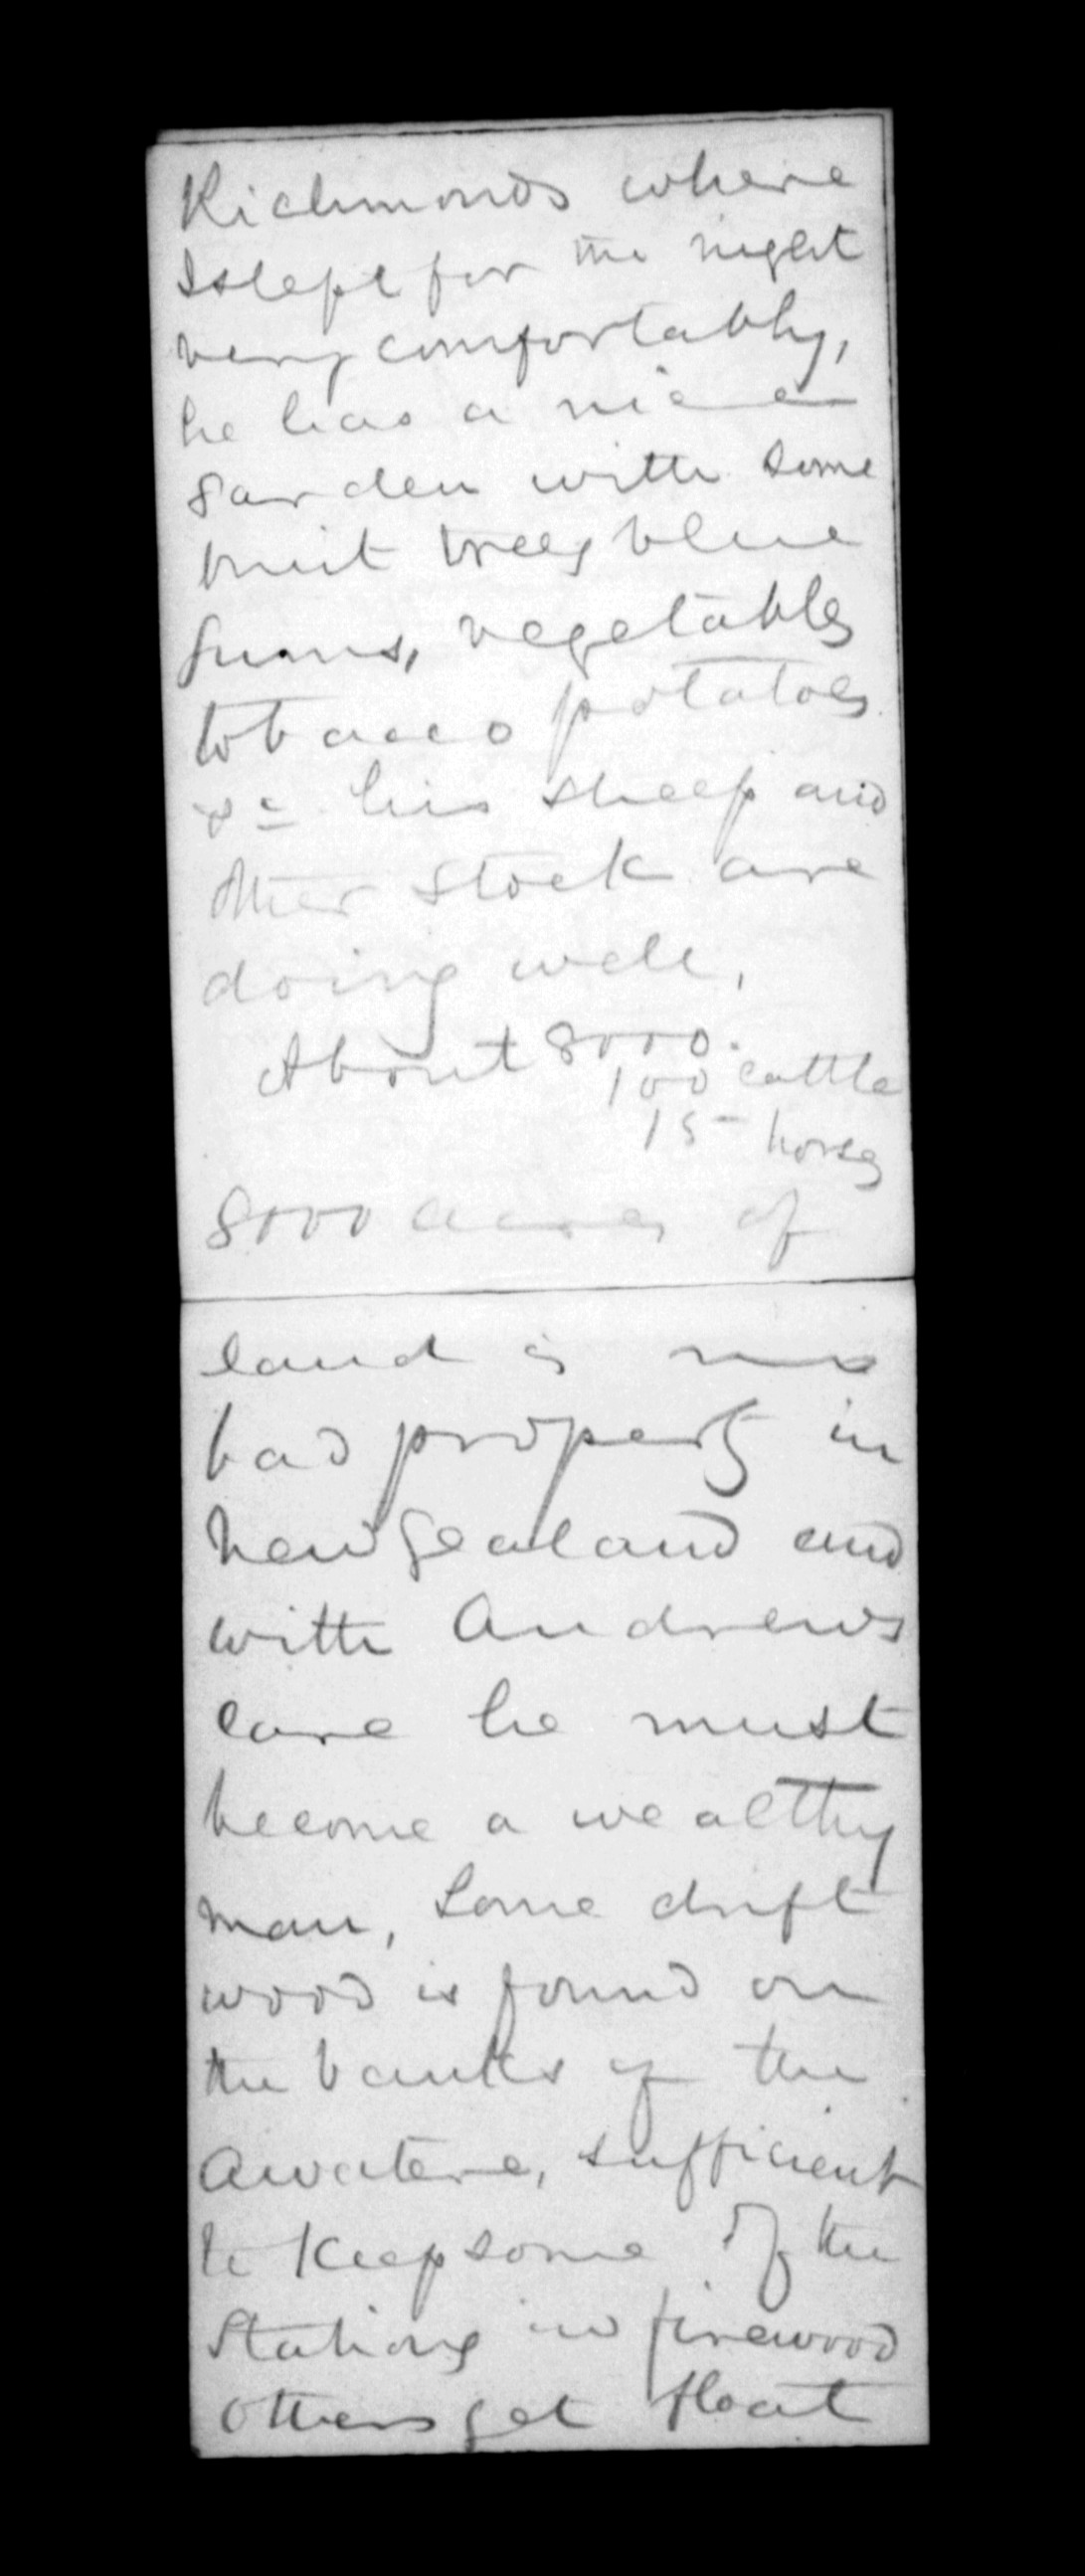 Richmonds where
I slept for the night
very comfortably,
he has a nice
garden with some
fruit trees blue
gums, vegetables
tobacco potatoes
&c his sheep and
other stock are
doing well,
About 8000.
100 cattle
15 horses
8000 acres of
land is no
bad property in
New Zealand and
with Andrews
care he must
become a wealthy
man, Some drift
wood is found on
the banks of the
Awatere, sufficient
to keep some of the
Stations in firewood
others get float